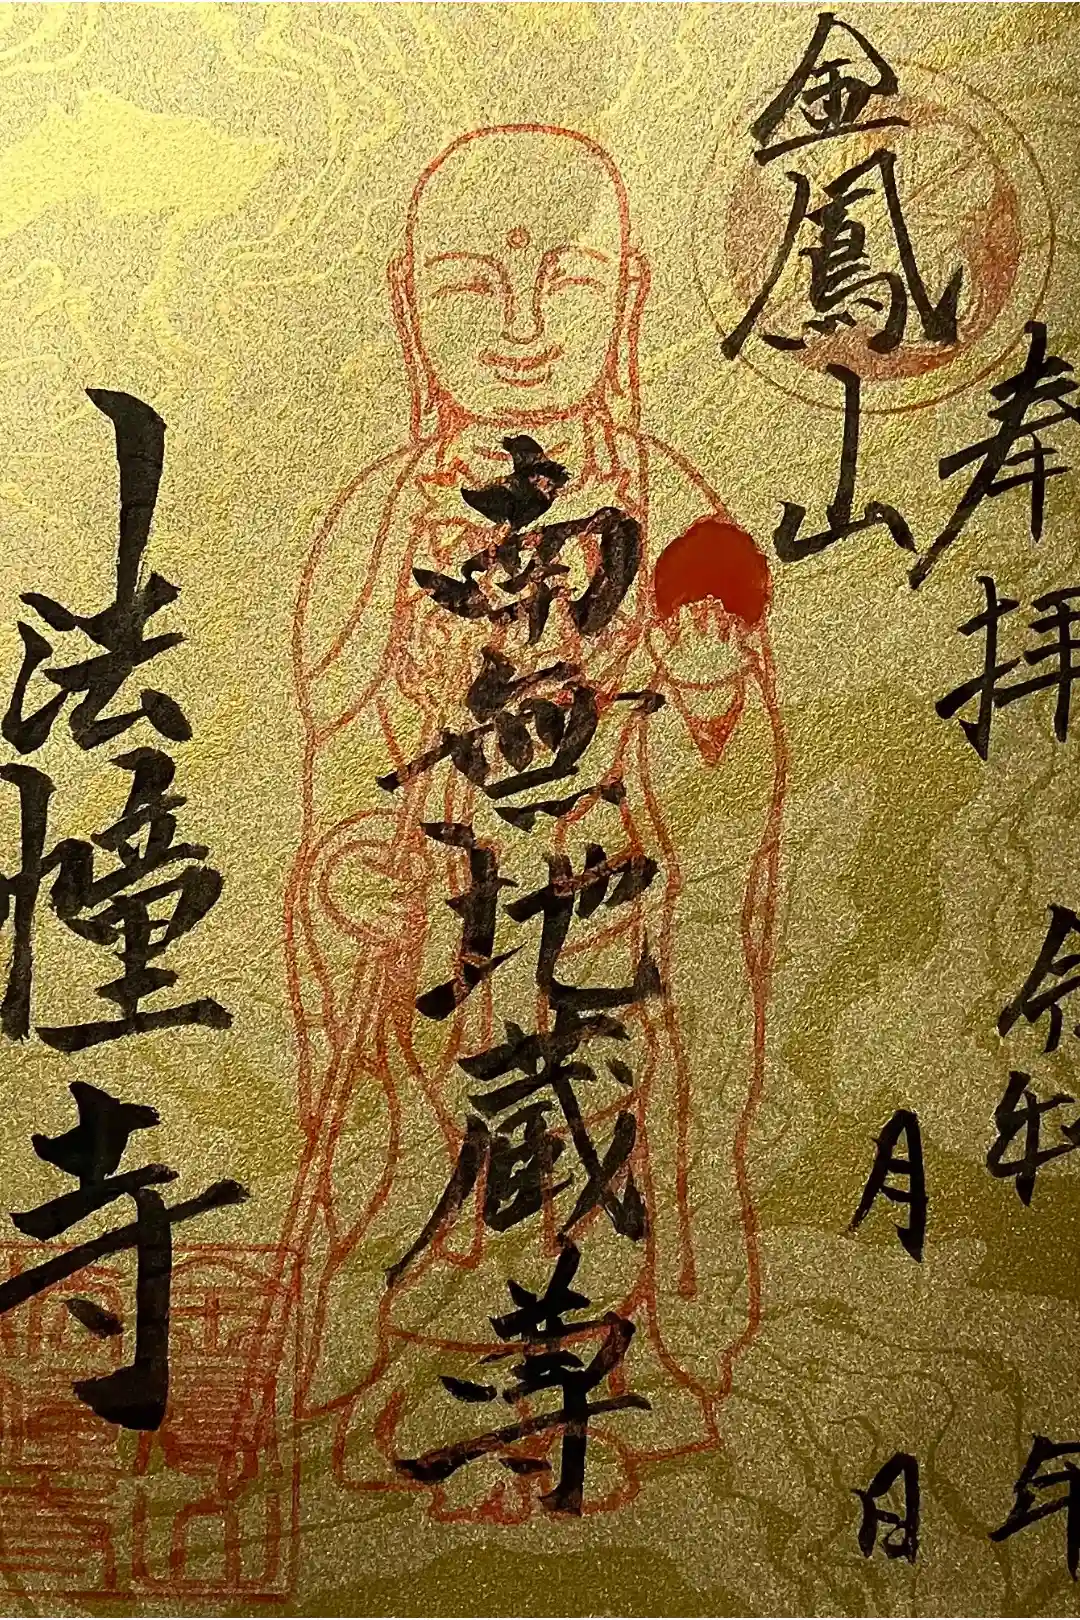 奉拝
令和 年
月 日
金鳳山
南無地蔵尊
法幢寺